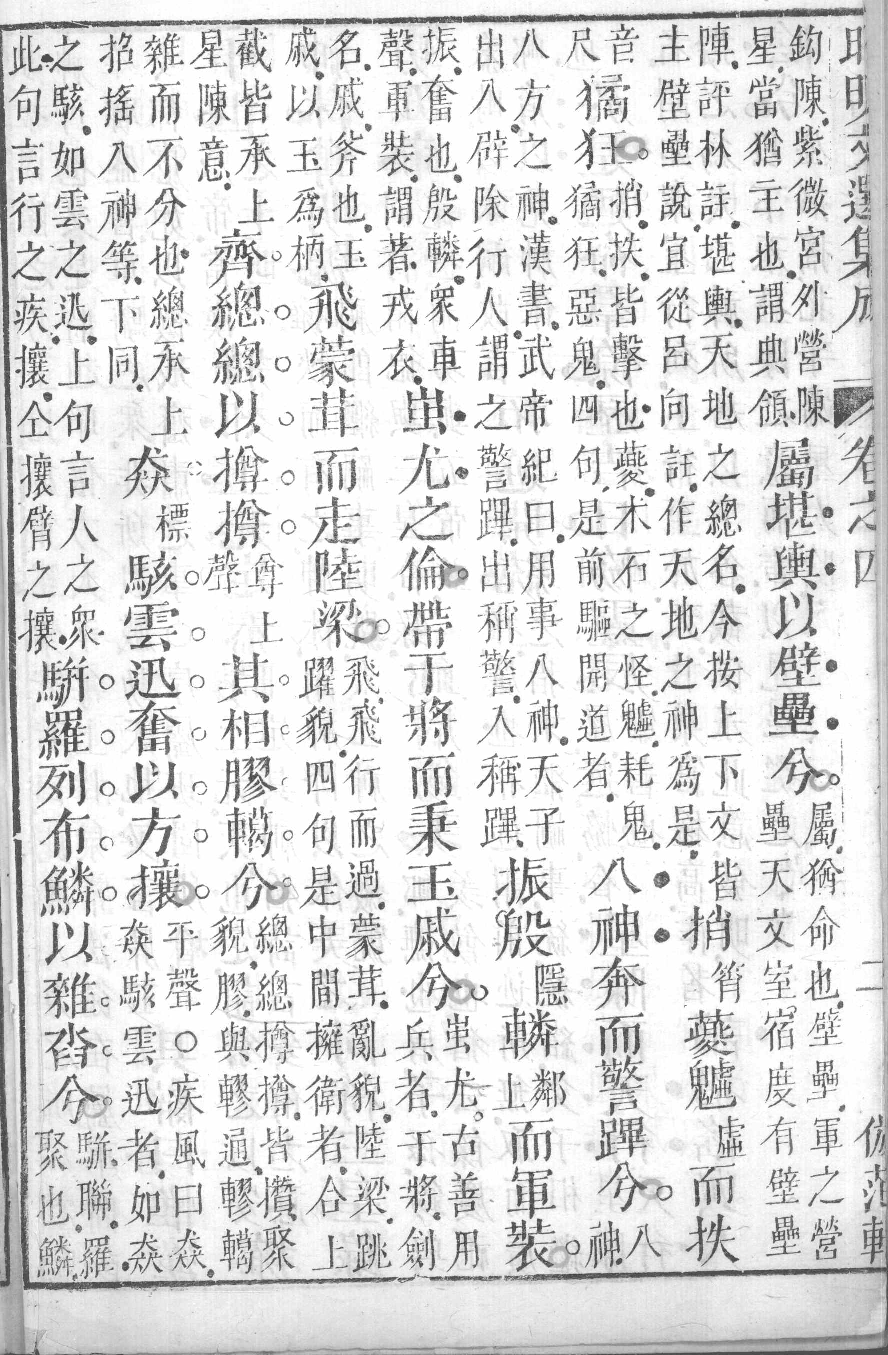 昭明文選集成 卷之四 二 倣范軒
鈎陳紫微宮外營陳
星當猶主也謂典領
屬堪輿以壁壘兮
屬猶命也壁壘軍之營
壘天文室宿度有壁壘
陣評林註堪輿天地之總名今按上下文皆
主壁壘說宜從呂向註作天地之神為是
捎筲夔魖虛而抶
音
尺
獝狂
捎抶皆擊也夔木石之怪魖耗鬼
獝狂惡鬼四句是前驅開道者
八神奔而警蹕兮
八
神
八方之神漢書武帝紀曰用事八神天子
出入辟除行人謂之警蹕出稱警入稱蹕
振殷隱轔鄰上而軍裝
振奮也殷轔衆車
聲軍裝謂著戎衣
蚩尤之倫帶干將而秉玉戚兮
蚩尤古善用
兵者干將劍
名戚斧也玉
戚以玉爲柄
飛蒙茸而走陸梁
飛飛行而過蒙茸亂貌陸梁跳
躍貌四句是中間擁衛者合上
截皆承上
星陳意
齊總總以撙撙尊上聲其相膠轕兮
總總撙撙皆攢聚
貌膠與轇通轇轕
雜而不分也總承上
招搖八神等下同
猋標駭雲迅奮以方攘
平聲○疾風曰猋
猋駭雲迅者如猋
之駭如雲之迅上句言人之衆
此句言行之疾攘仝攘臂之攘
駢羅列布鱗以雜沓兮
駢聯羅
聚也鱗